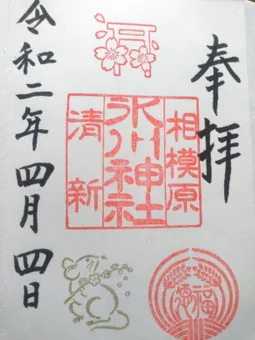 奉拝
相模原
氷川神社
清新
令和二年四月四日
福徳